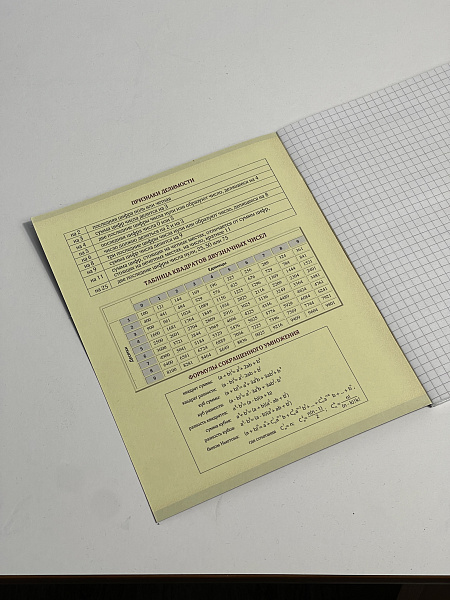 ПРИЗНАКИ ДЕЛИМОСТИ
на 2 последняя цифра ноль или четная
на 3 сумма цифр числа делится на 3
на 4 две последние цифры числа нули или образуют число, делящееся на 4
на 5 последняя цифра числа 0 или 5
на 6 число делится на 2 и на 3
на 8 три последние цифры числа нули или образуют число, делящееся на 8
на 9 сумма цифр числа делится на 9
на 11 сумма цифр, стоящих на четных местах, отличается от суммы цифр,
стоящих на нечетных местах, на число, кратное 11
на 25 две последние цифры числа нули, 25, 50 или 75
ТАБЛИЦА КВАДРАТОВ ДВУЗНАЧНЫХ ЧИСЕЛ
Единицы
Десятки
0 1 2 3 4 5 6 7 8 9
1 100 121 144 169 196 225 256 289 324 361
2 400 441 484 529 576 625 676 729 784 841
3 900 961 1024 1089 1156 1225 1296 1369 1444 1521
4 1600 1681 1764 1849 1936 2025 2116 2209 2304 2401
5 2500 2601 2704 2809 2916 3025 3136 3249 3364 3481
6 3600 3721 3844 3969 4096 4225 4356 4489 4624 4761
7 4900 5041 5184 5329 5476 5625 5776 5929 6084 6241
8 6400 6561 6724 6889 7056 7225 7396 7569 7744 7921
9 8100 8281 8464 8649 8836 9025 9216 9409 9604 9801
ФОРМУЛЫ СОКРАЩЕННОГО УМНОЖЕНИЯ
квадрат суммы: (a + b)² = a² + 2ab + b²
квадрат разности: (a - b)² = a² - 2ab + b²
куб суммы: (a + b)³ = a³ + 3a²b + 3ab² + b³
куб разности: (a - b)³ = a³ - 3a²b + 3ab² - b³
разность квадратов: a² - b² = (a - b)(a + b)
сумма кубов: a³ + b³ = (a + b)(a² - ab + b²)
разность кубов: a³ - b³ = (a - b)(a² + ab + b²)
бином Ньютона:
где сочетания